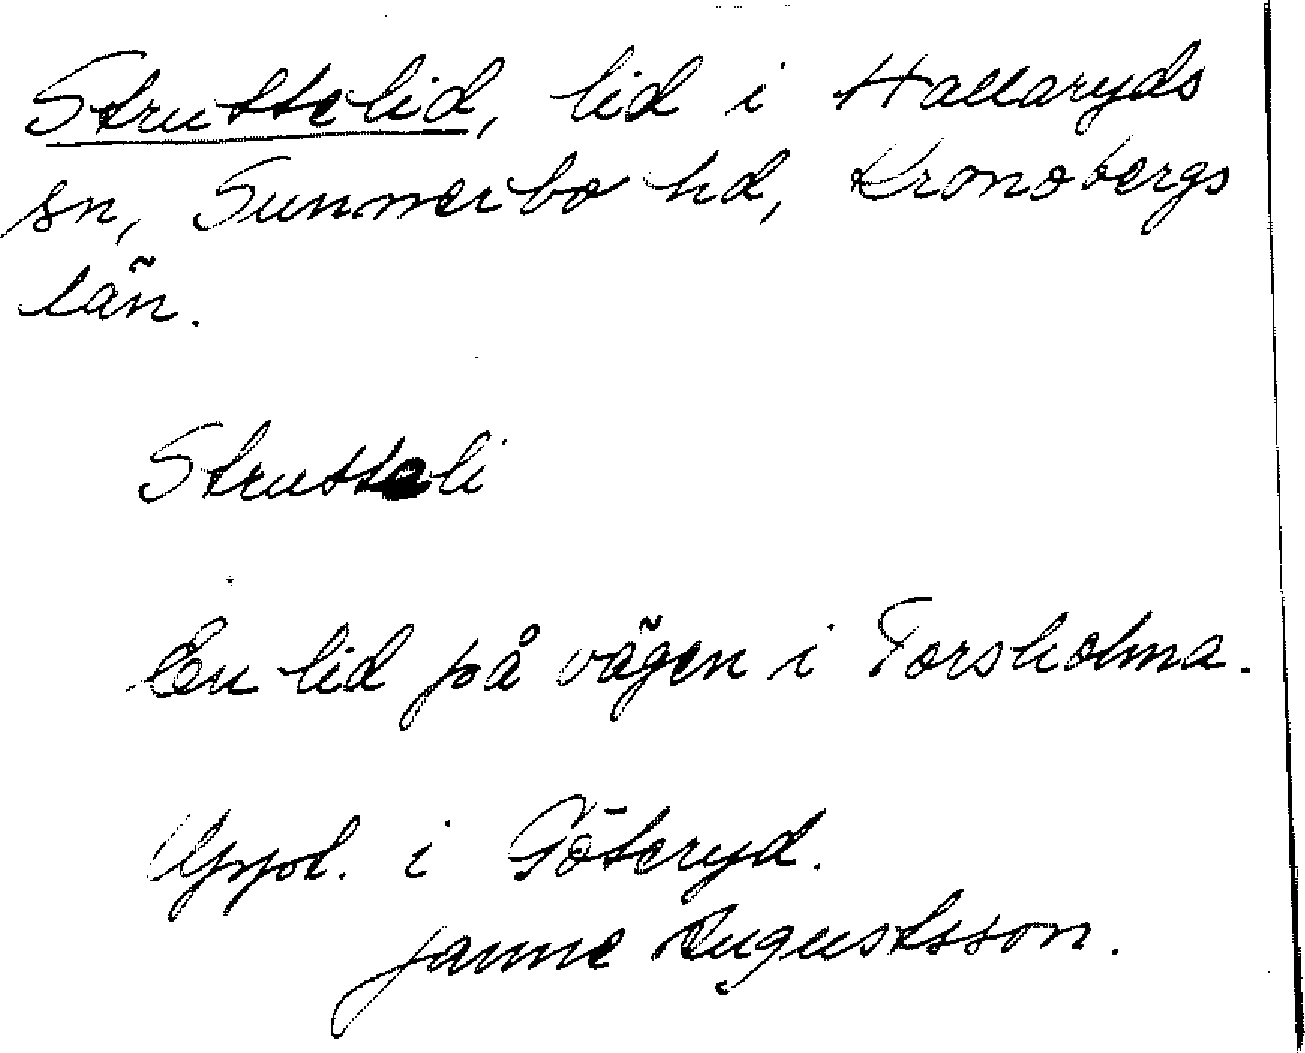 Struttelid, lid i Hallaryds
sn, Sunnerbo hd, Kronobergs
län.
Strutteli
En lid på vägen i Torsholma.
Uppt. i Göteryd.
Janne Augustsson.